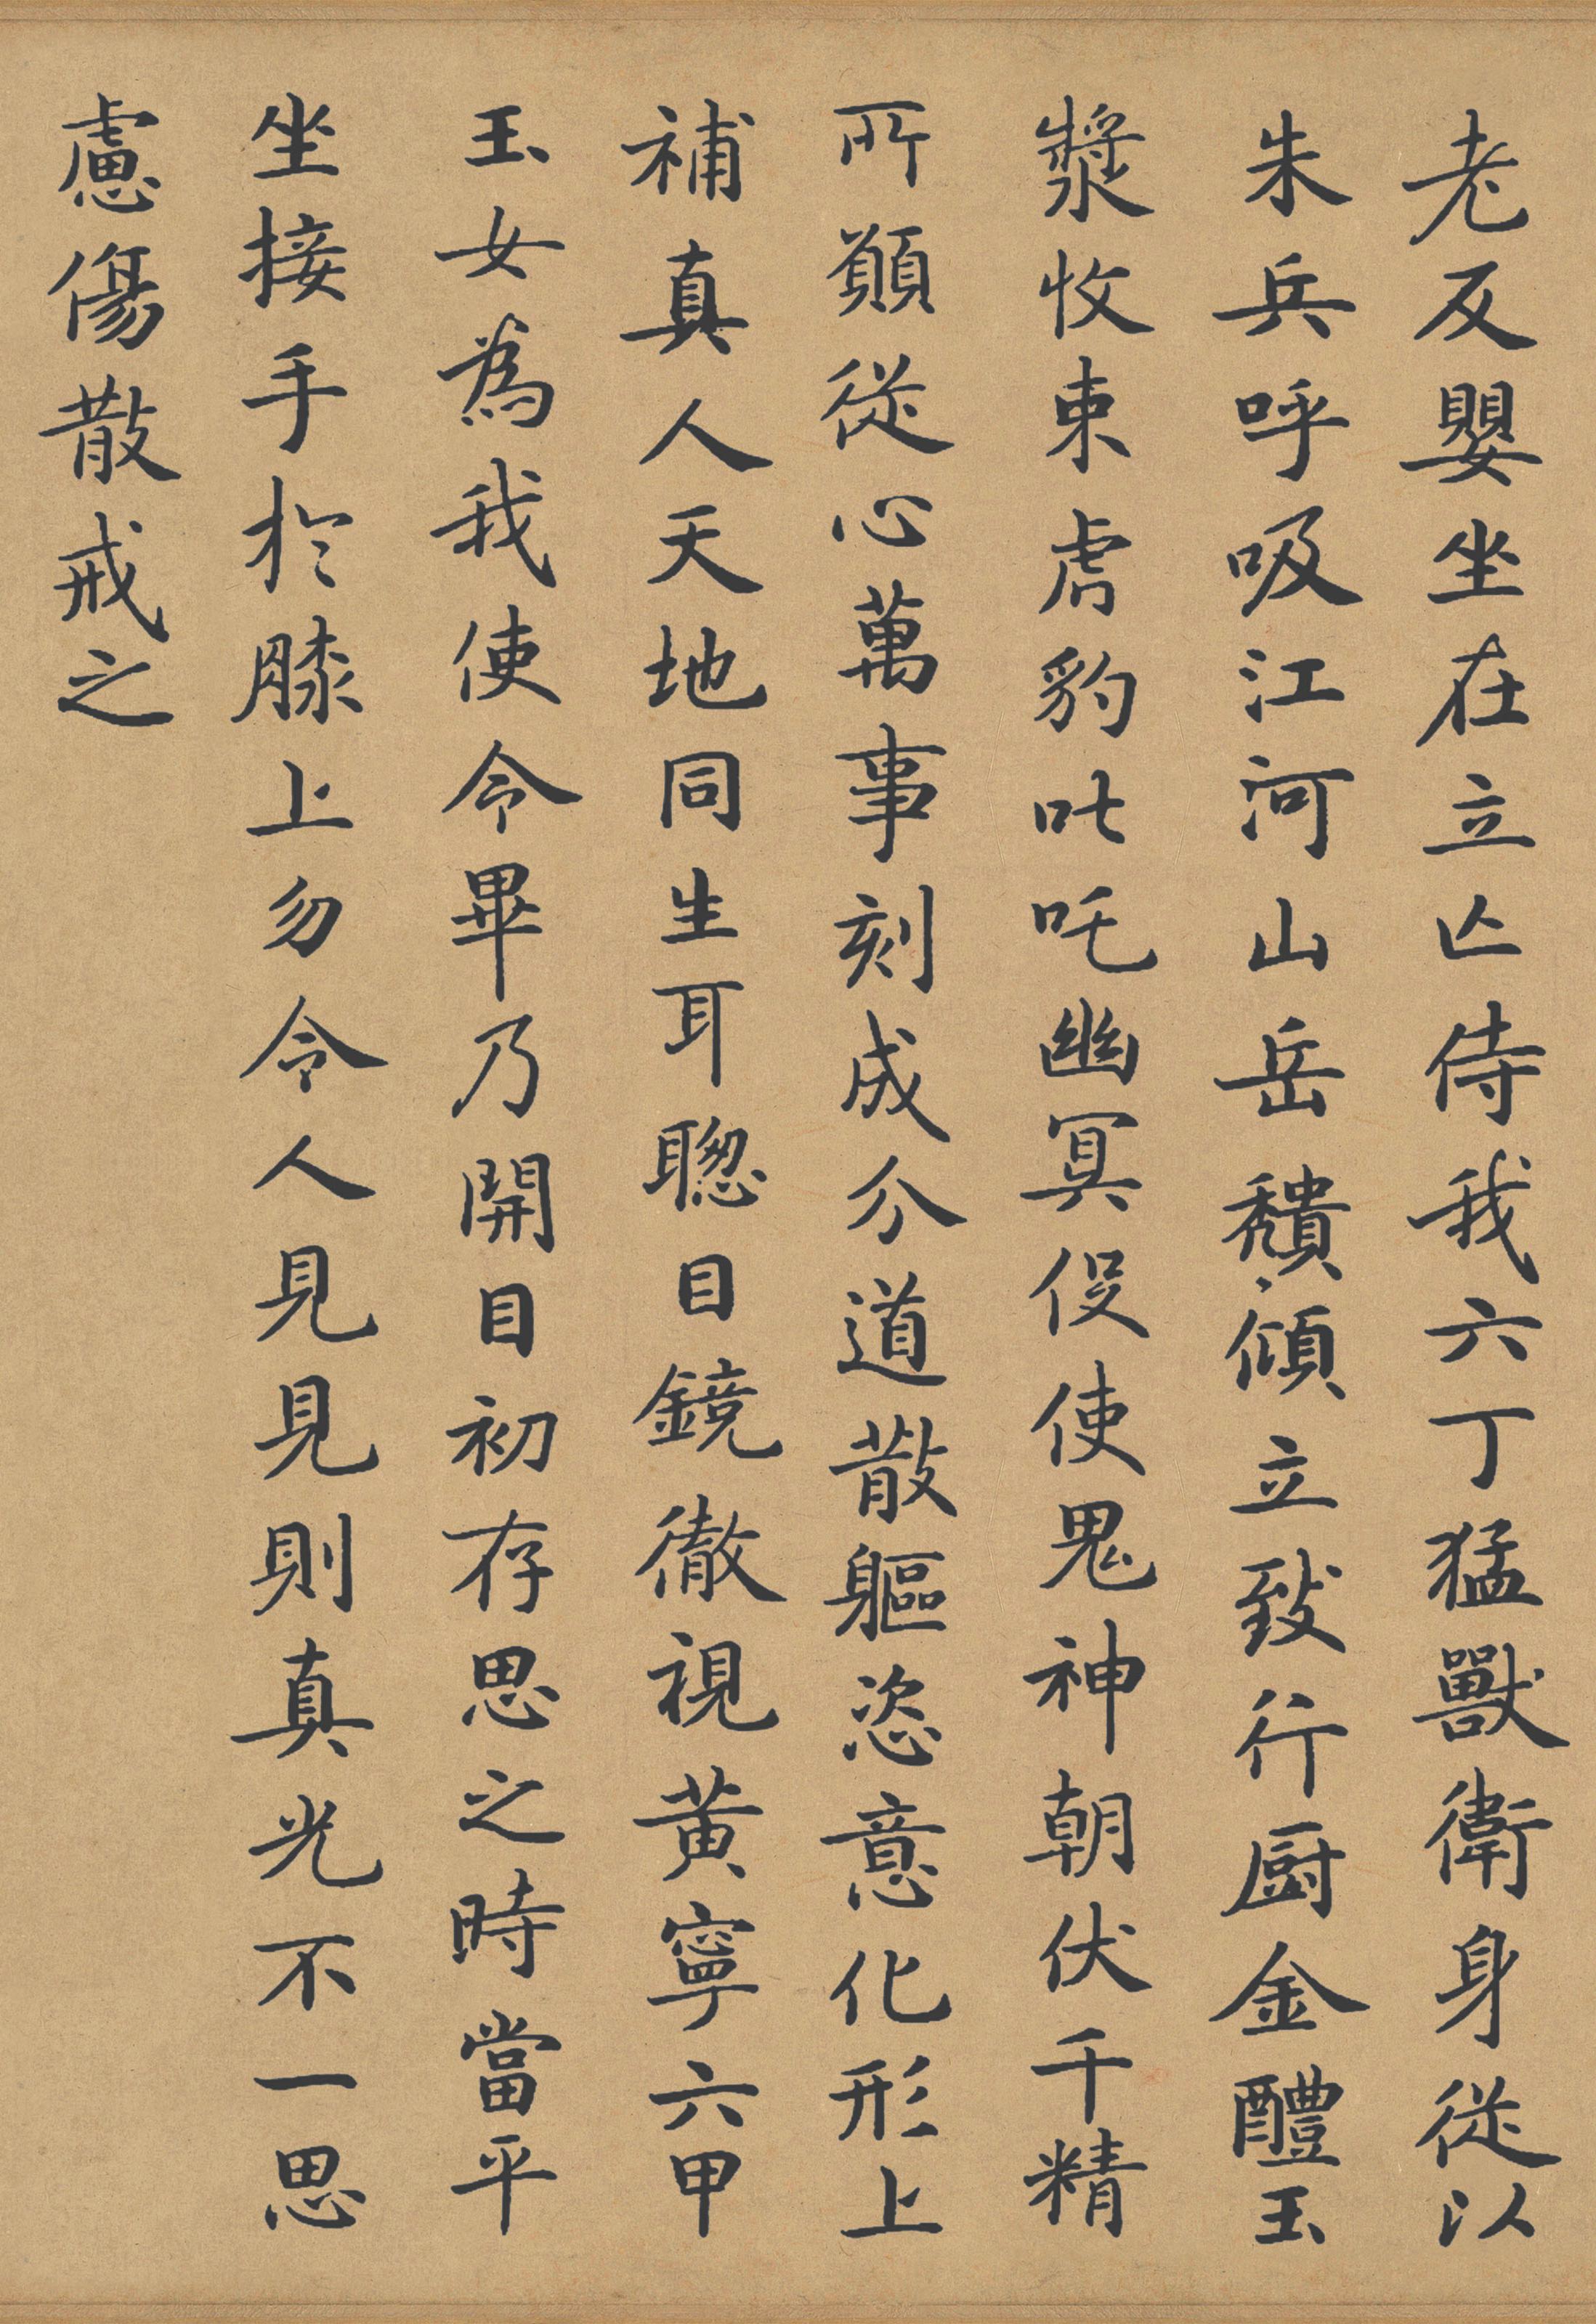 老反嬰坐在立亾侍我六丁猛獸衛身從以
朱兵呼吸江河山岳穨傾立致行厨金醴玉
漿收束虎豹叱吒幽冥役使鬼神朝伏千精
所願從心萬事剋成分道散軀恣意化形上
補真人天地同生耳聰目鏡徹視黃寧六甲
玉女為我使令畢乃開目初存思之時當平
坐接手於膝上勿令人見見則真光不一思
慮傷散戒之